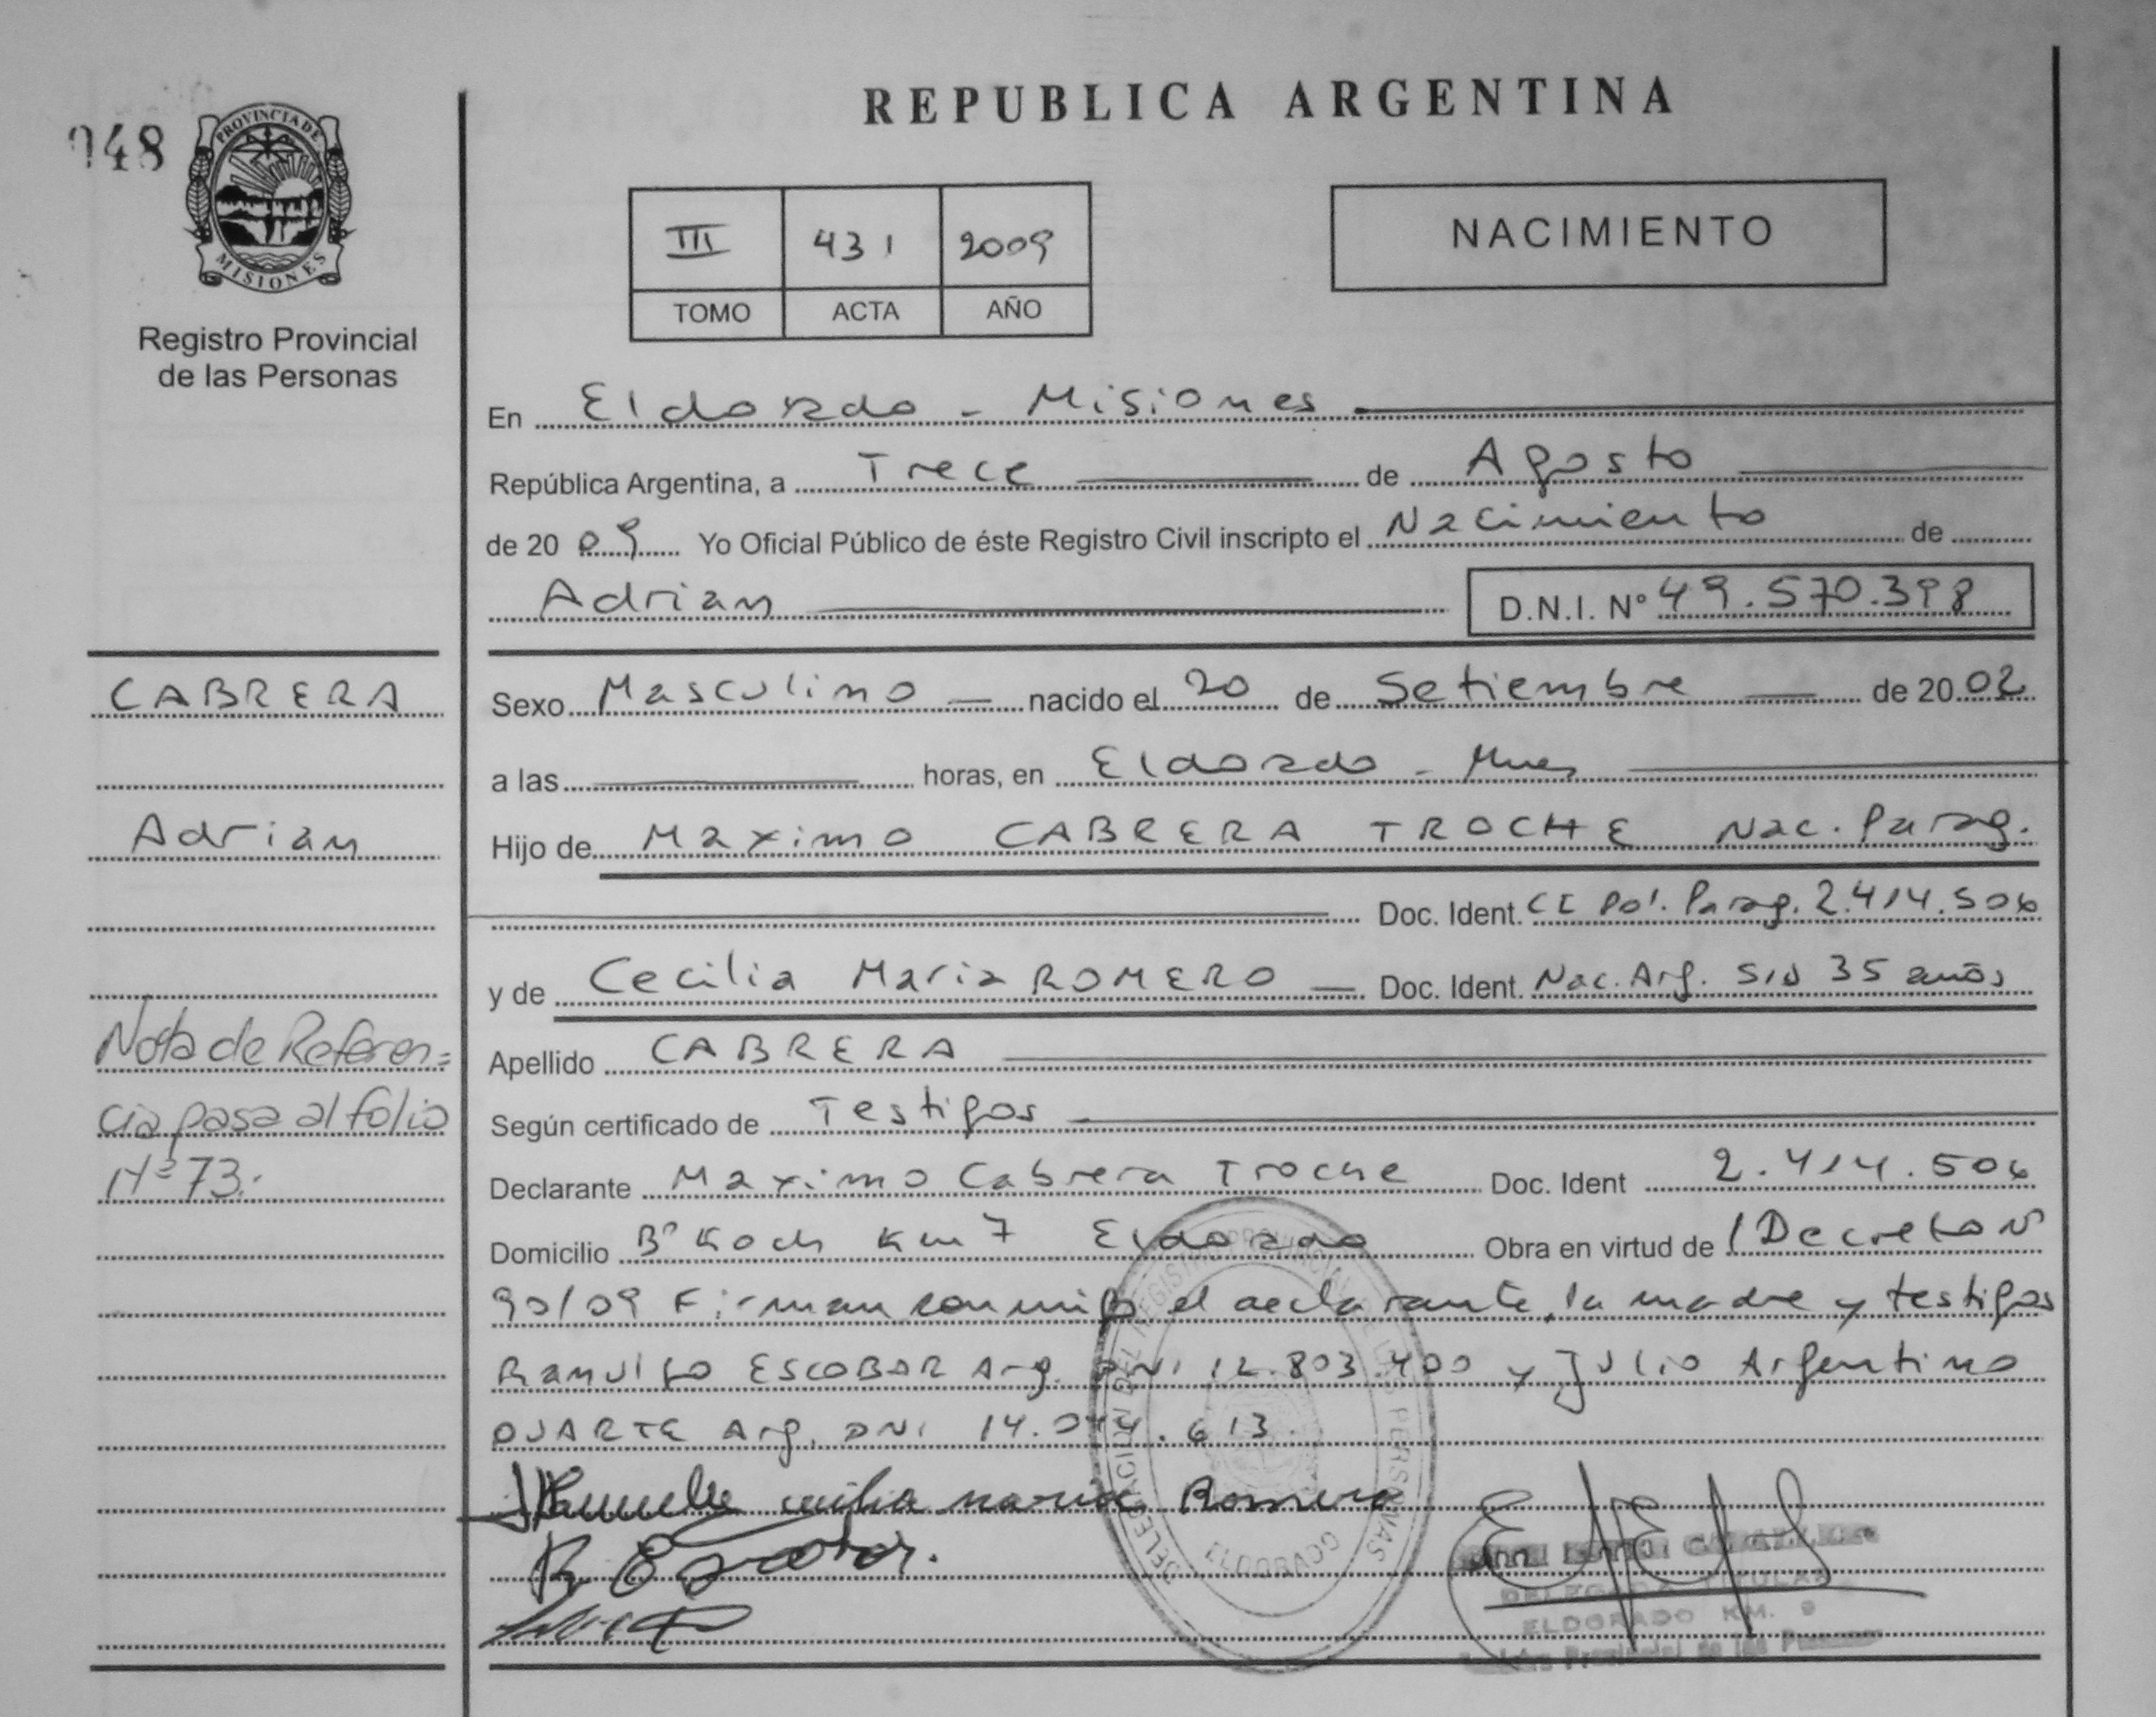 REPUBLICA ARGENTINA
948
PROVINCIA DE
MISIONES
Registro Provincial
de las Personas
III 431 2009
TOMO ACTA AÑO
NACIMIENTO
En Eldorado - Misiones
República Argentina, a Trece de Agosto
de 20 09 Yo Oficial Público de éste Registro Civil inscripto el Nacimiento de
Adrian D.N.I. Nº 49.570.398
CABRERA
Adrian
Nota de Referen=
cia pasa al folio
Nº 73.
Sexo Masculino nacido el 20 de Setiembre de 20 02
a las horas, en Eldorado - Mnes
Hijo de Maximo CABRERA TROCHE Nac. Parag.
Doc. Ident. CI Pol. Parag. 2.414.506
y de Cecilia Maria ROMERO Doc. Ident. Nac. Arg. S/D 35 años
Apellido CABRERA
Según certificado de Testigos
Declarante Maximo Cabrera Troche Doc. Ident 2.414.506
Domicilio Bº Koch Km 7 Eldorado Obra en virtud de Decreto Nº
90/09 Firman conmigo el declarante, la madre y testigos
Ranulfo ESCOBAR Arg. DNI 12.803.400 y Julio Argentino
DUARTE Arg. DNI 14.044.613.
cecilia maria Romero
DELEGACION DEL REGISTRO PROVINCIAL DE LAS PERSONAS
ELDORADO
DELEGADA TITULAR
ELDORADO KM. 9
Provincial de las Personas